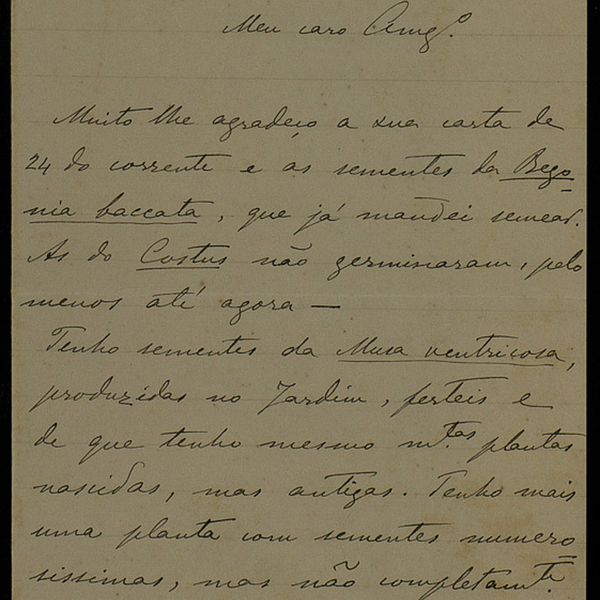 Meu caro Amgº.
Muito lhe agradeço a sua carta de
24 do corrente e as sementes da Bego=
nia baccata, que já mandei semear.
As do Costus não germinaram, pelo
menos até agora —
Tenho sementes da Musa ventricosa,
produzidas no Jardim, ferteis e
de que tenho mesmo m.tas plantas
nascidas, mas antigas. Tenho mais
uma planta com sementes numero=
sissimas, mas não completamt.e